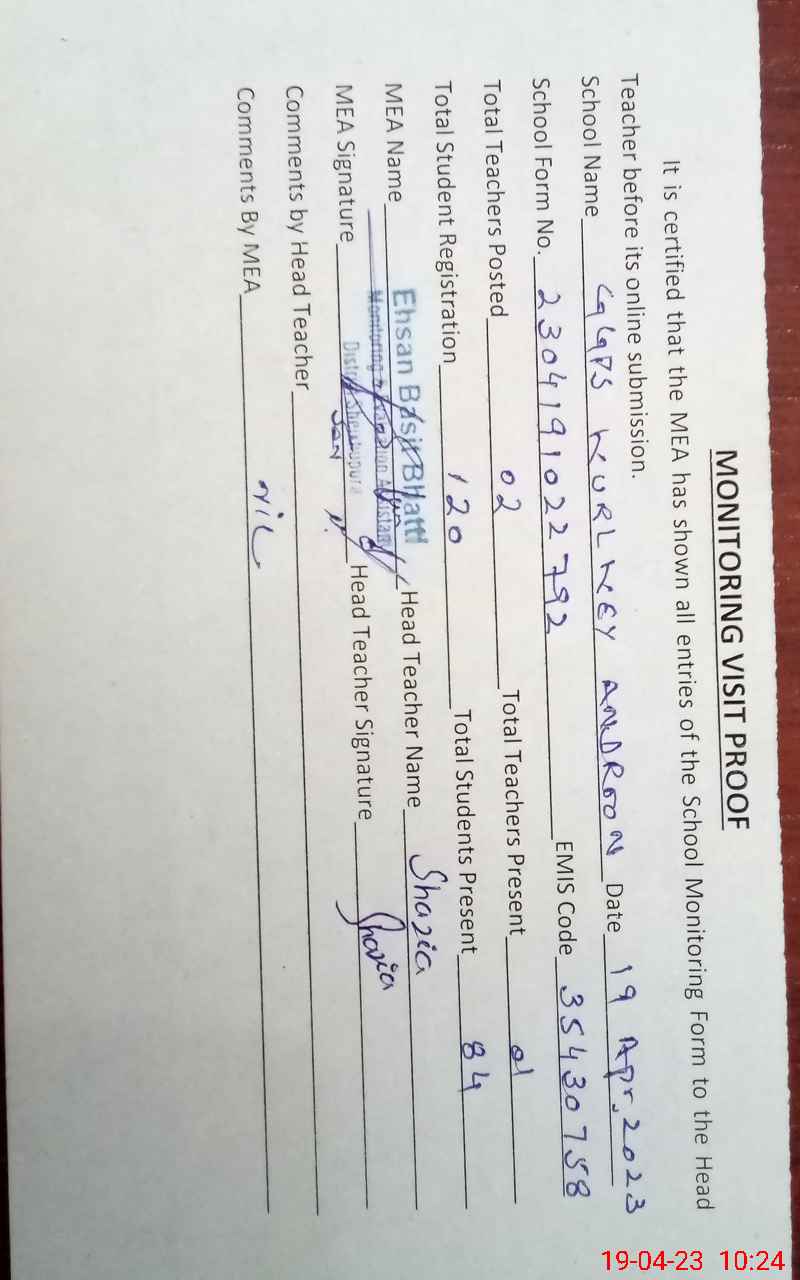 MONITORING VISIT PROOF
It is certified that the MEA has shown all entries of the School Monitoring Form to the Head
Teacher before its online submission.
School Name GGPS KURLKEY ANDROON Date 19 Apr, 2023
School Form No. 2304191022792 EMIS Code 35430758
Total Teachers Posted 02 Total Teachers Present 01
Total Student Registration 120 Total Students Present 84
MEA Name Ehsan Basir Bhatti Head Teacher Name Shazia
Monitoring & Evaluation Assistant
District Sheikhupura
MEA Signature Head Teacher Signature Shazia
Comments by Head Teacher
Comments By MEA NIL
19-04-23 10:24